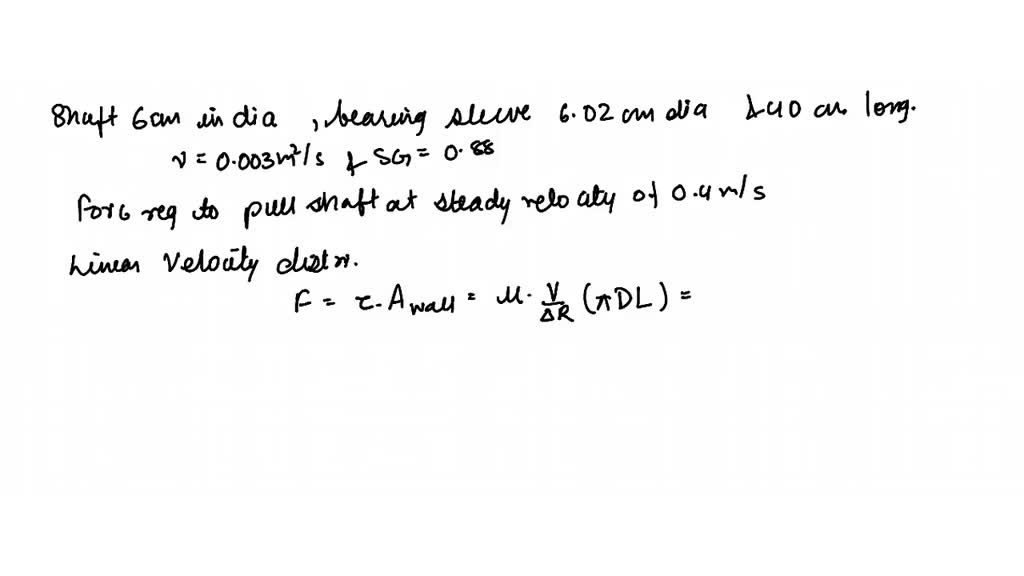 Shaft 6cm in dia , bearing sleeve 6.02 cm dia & 40 cm long.
ν = 0.003 m²/s & SG = 0.88
Force req to pull shaft at steady velocity of 0.4 m/s
Linear Velocity distn.
F = τ. A wall = μ. V/ΔR (πDL) =